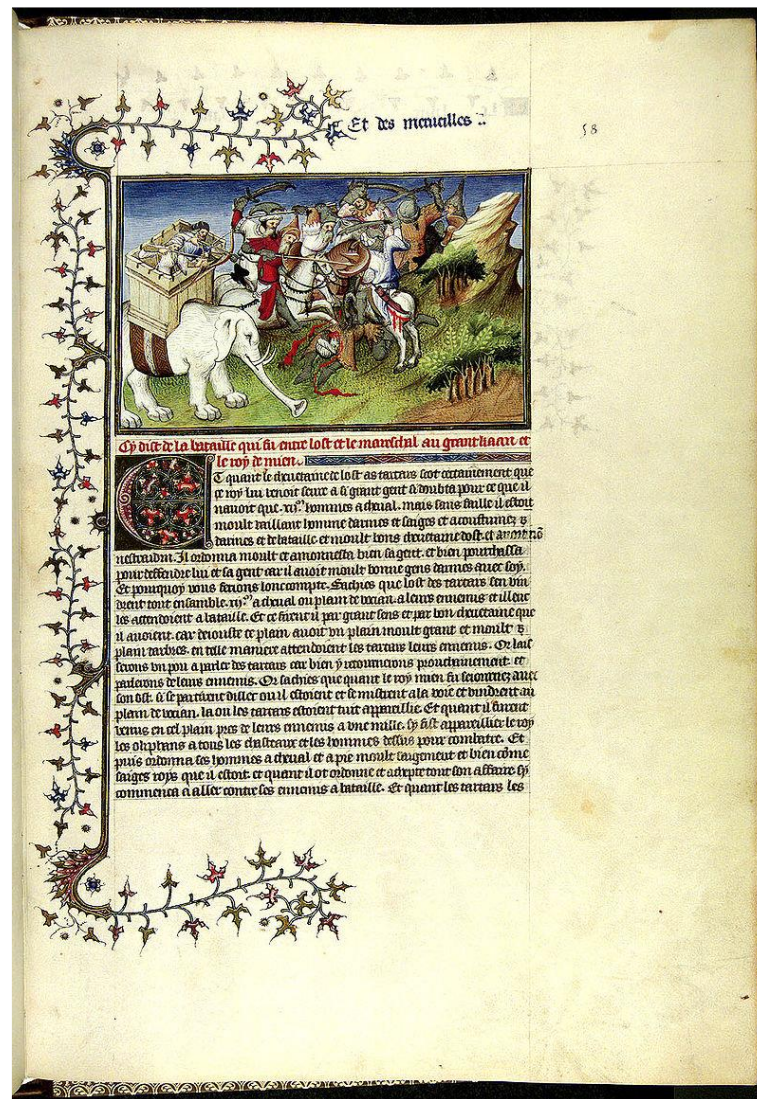 Et des merueilles
58
Cy dist de la bataille qui fu entre lost et le mareschal au grant kaan et
le roy de mien.
Et quant le cheuetaine de lost as tartars sceut certainement que
ce roy lui venoit seure a si grant gent si doubta pour ce que il
nauoit que .xij.m hommes a cheual. mais sans faille il estoit
moult vaillant homme darmes et saiges et acoustumez
darmes et de bataille et moult bons cheuetaine dost. et
Il ordonna moult et amonnesta bien sa gent. et bien pourchassa
pour deffendre lui et sa gent car il auoit moult bonne gens darmes auec soy.
Et pourquoy vous feroie lonc compte. Sachies que lost des tartars sen vin
drent tout ensamble .xij.m a cheual ou plain de vocian. a leurs ennemis et illeuc
les attendoient a bataille. Et ce firent il par grant sens et par bon cheuetaine que
il auoient. car deiouste ce plain auoit vn plain moult grant et moult
plain tarbres. en telle maniere attendoient les tartars leurs ennemis. Or lais
serons vn pou a parler des tartars car bien y retournerons prouchainement et
parlerons de leurs ennemis. Or sachies que quant le roy mien fu seiournez auec
son ost. si se partirent diller ou il estoient et se mistrent a la voie et vindrent au
plain de vocian. la ou les tartars estoient tuit appareillie. Et quant il furent
venus en cel plain pres de leurs ennemis a vne mille. sy fist appareillier le roy
les oliphans a tous les chasteaux et les hommes dessus pour combatre. Et
puis ordonna ses hommes a cheual et a pie moult saigement et bien cõme
saiges roys que il estoit. et quant il ot ordonne et tout son affaire sy
commenca a aller contre ses ennemis a bataille. Et quant les tartars les